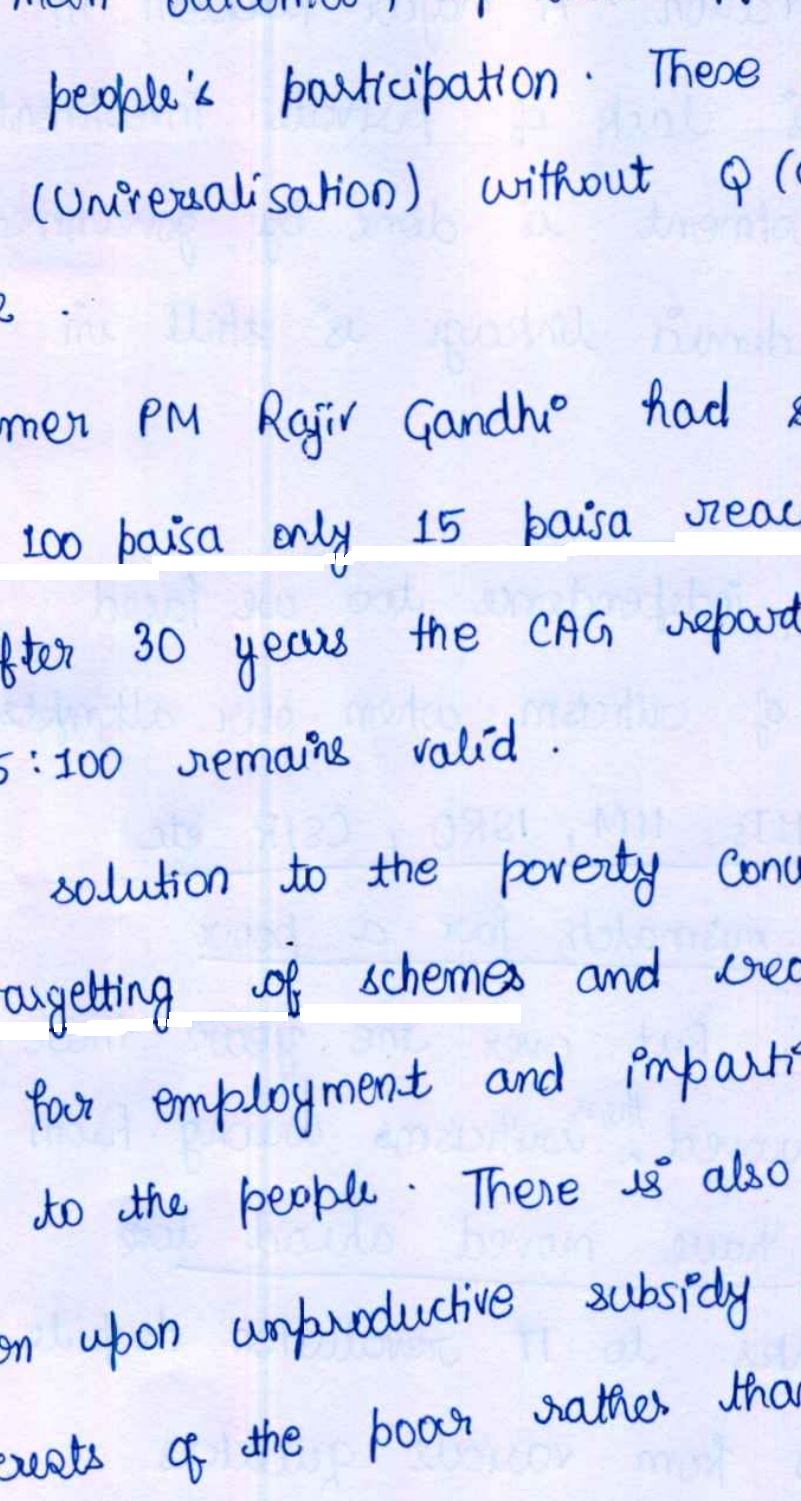 people's participation. These
(Universalisation) without Q
PM Rajiv Gandhi had
100 paisa only 15 paisa
30 years the CAG
5:100 remains valid.
solution to the poverty
targetting of schemes and
for employment and
to the people. There is also
upon unproductive subsidy
of the poor rather